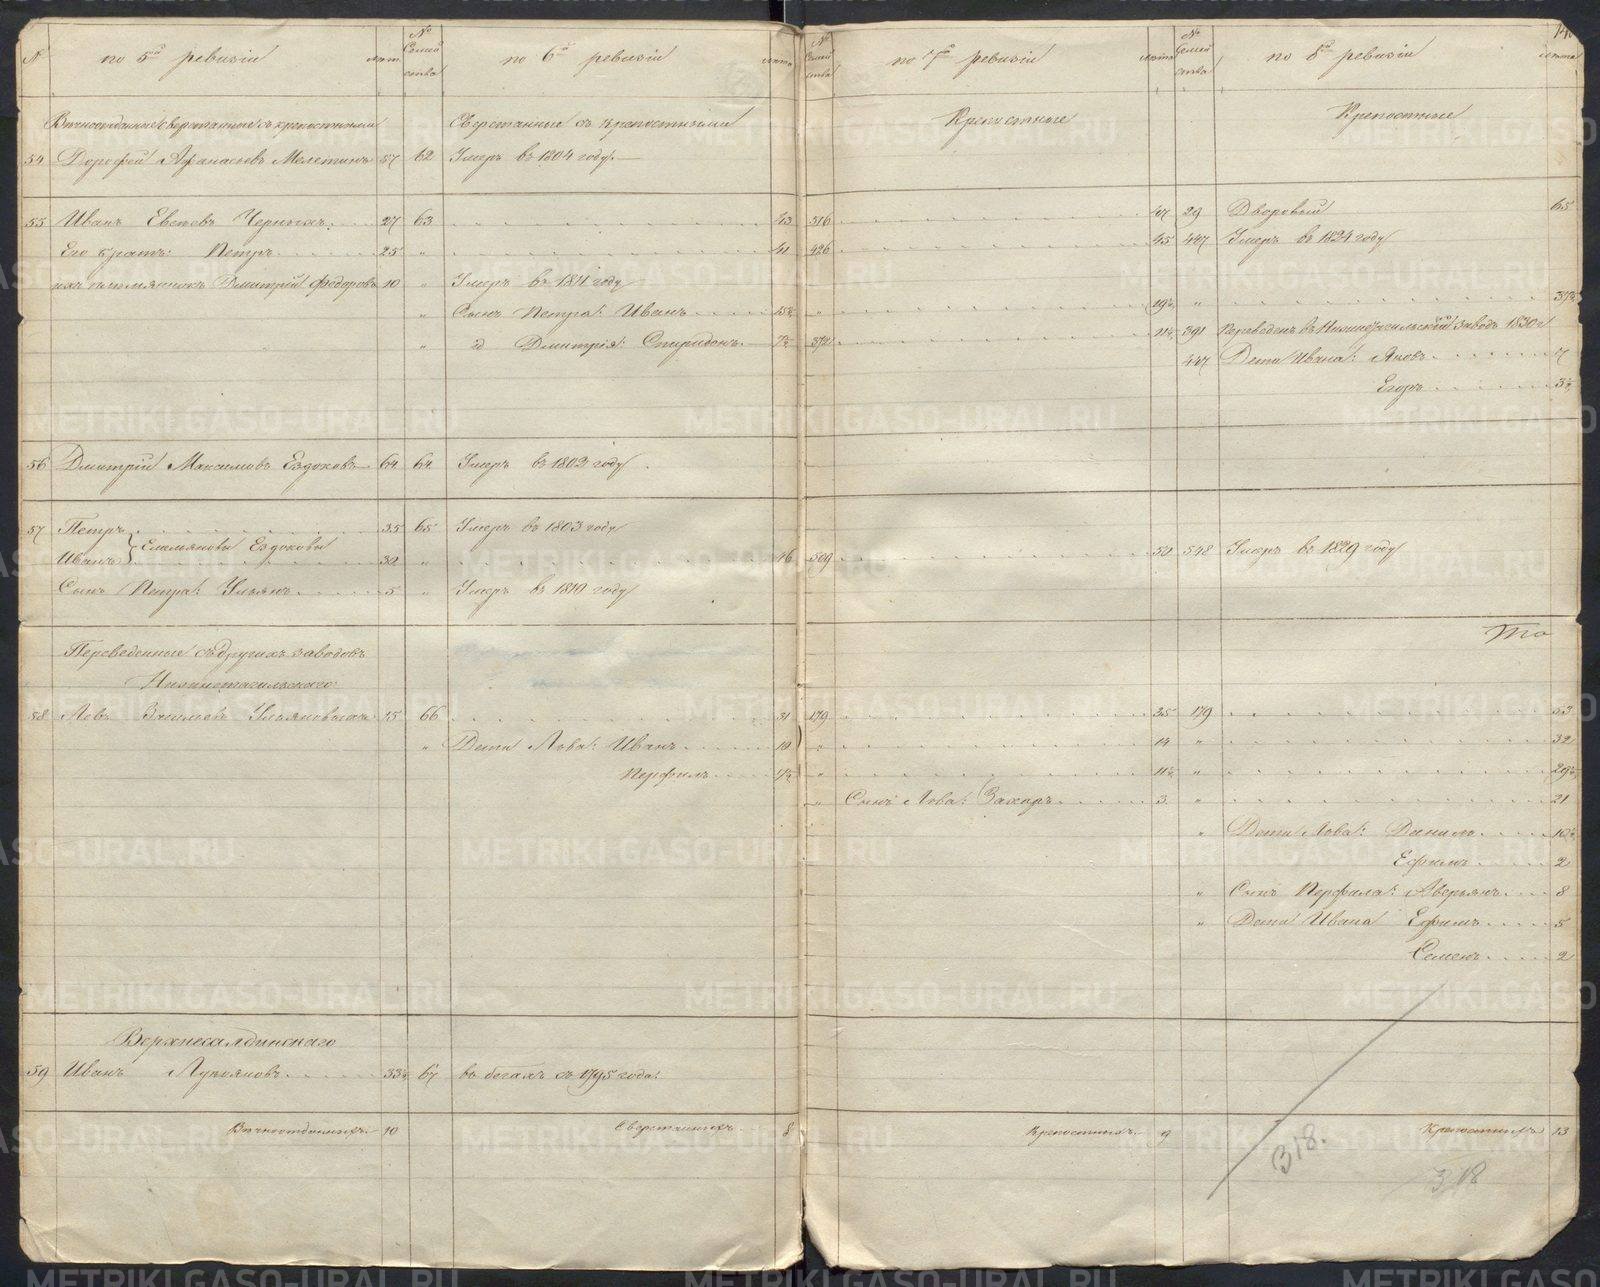 № по 5й ревизіи лѣта № Семейства по 6й ревизіи лѣта № Семейства по 7й ревизіи лѣта № Семейства по 8й ревизіи лѣта
Вѣчноотданные сверстанные съ крепостными Сверстанные съ крепостными Крепостные Крепостные
54 Дорофей Афанасьевъ Мелетинъ 57 62 Умеръ въ 1804 году.
55 Иванъ Евсѣевъ Черныхъ: 27 63 43 316 47 29 Дворовый 65
Его братъ: Петръ 25 " 41 426 45 447 Умеръ въ 1824 году
ихъ племянникъ Дмитрій Федоровъ 10 " Умеръ въ 1811 году
" Сынъ Петра: Иванъ " 19½ " 37½
" Дмитрія: Спиридонъ 391 Переведенъ въ Нижнетагильскій заводъ 1830 г
447 Дети Ивана: Яковъ 7
Егоръ 3½
56 Дмитрій Максимовъ Ездаковъ 64 64 Умеръ въ 1802 году.
57 Петръ 35 65 Умеръ въ 1803 году
Емельяновы Ездаковы
Иванъ 32 " 46 509 50 548 Умеръ въ 1829 году
Сынъ Петра: Ульянъ 5 " Умеръ въ 1810 году
Переведенные съ другихъ заводовъ
Нижнетагильскаго
58 Левъ Васильевъ Ульяновыхъ 15 66 31 179 35 179 53
" Дети Льва: Иванъ 10 " 14 " 32
Перфилъ " 11½ " 29½
" Сынъ Льва: Захаръ 3 " 21
" Дети Льва: Данило 10½
Ефимъ 2
" Сынъ Перфила: Аверьянъ 8
" Дети Ивана Ефимъ 5
Семенъ 2
Верхнесалдинскаго
59 Иванъ Лукояновъ 33½ 67 въ бегахъ съ 1795 года.
Вѣчноотданныхъ 10 Сверстанныхъ 8 Крепостныхъ 9 Крепостныхъ 13
318.
318
METRIKI.GASO-URAL.RU